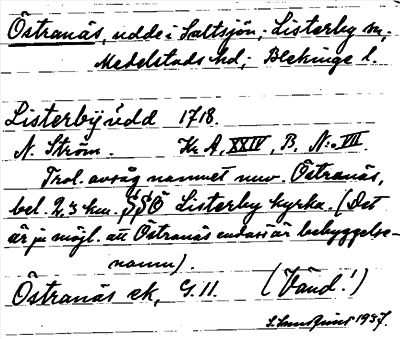 Östranäs, udde i Saltsjön; Listerby sn,
Medelstads hd; Blekinge l.
Listerbyüdd 1718.
N. Ström. Kr A, XXIV, B, N:o VII.
Trol. avsåg namnet nuv. Östranäs,
bel. 2,3 km. SSÖ Listerby kyrka. (Det
är ju möjl. att Östranäs endast är bebyggelse-
namn).
Östranäs ek, G. 11. (Vänd!)
1937.